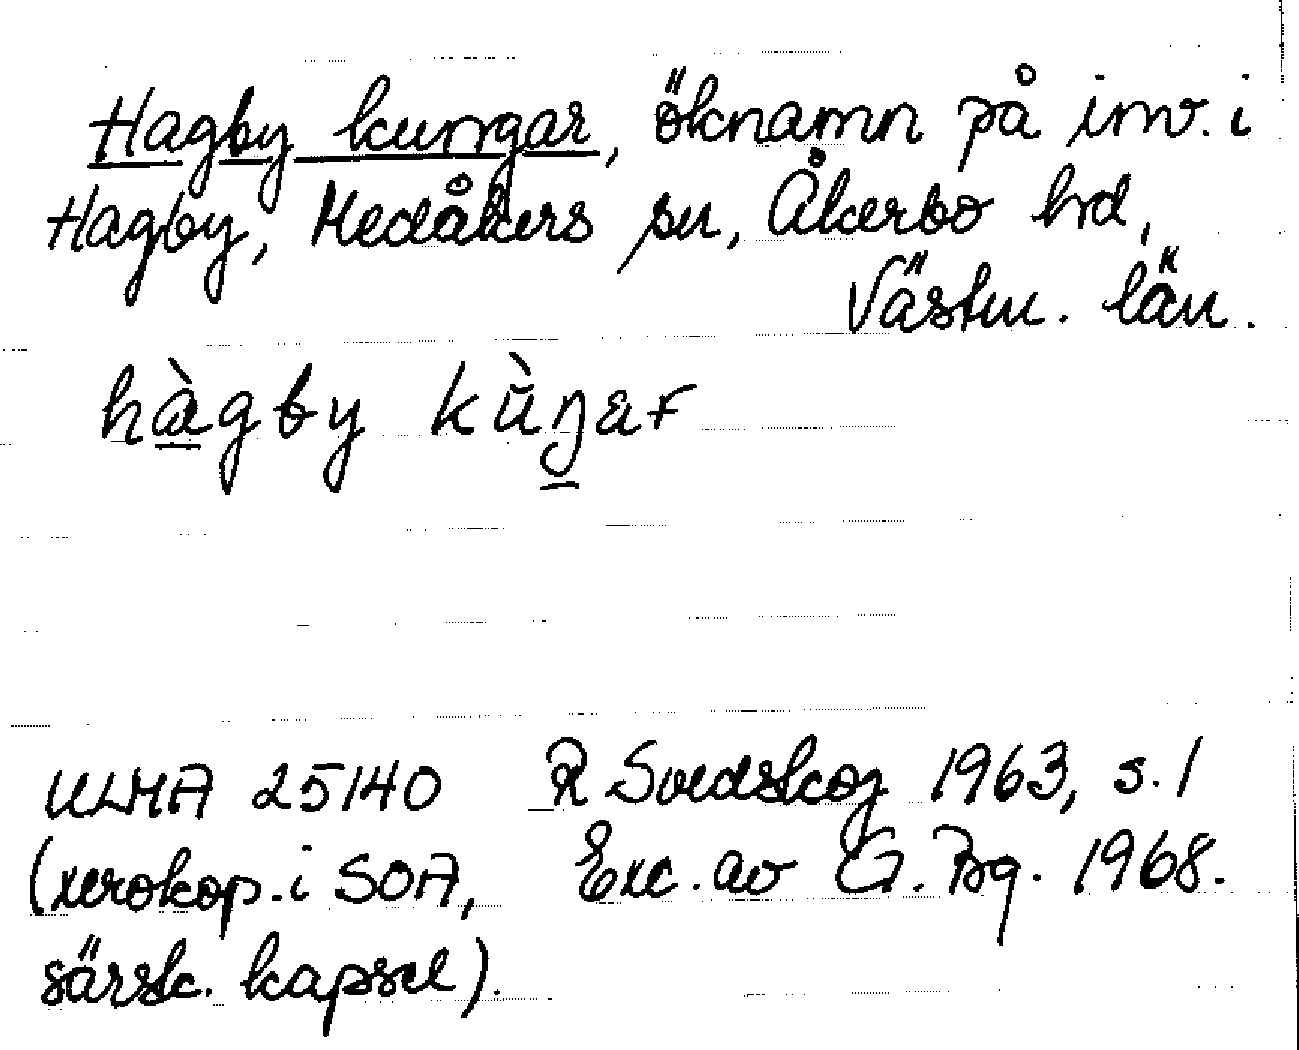 Hagby kungar, öknamn på inv. i
Hagby, Medåkers sn, Åkerbo hd,
Västm. län.
hàgby kùŋar
ULMA 25140 R Svedskog 1963, s. 1
(xerokop. i SOA, Exc. av G. Bg. 1968.
särsk. kapsel).